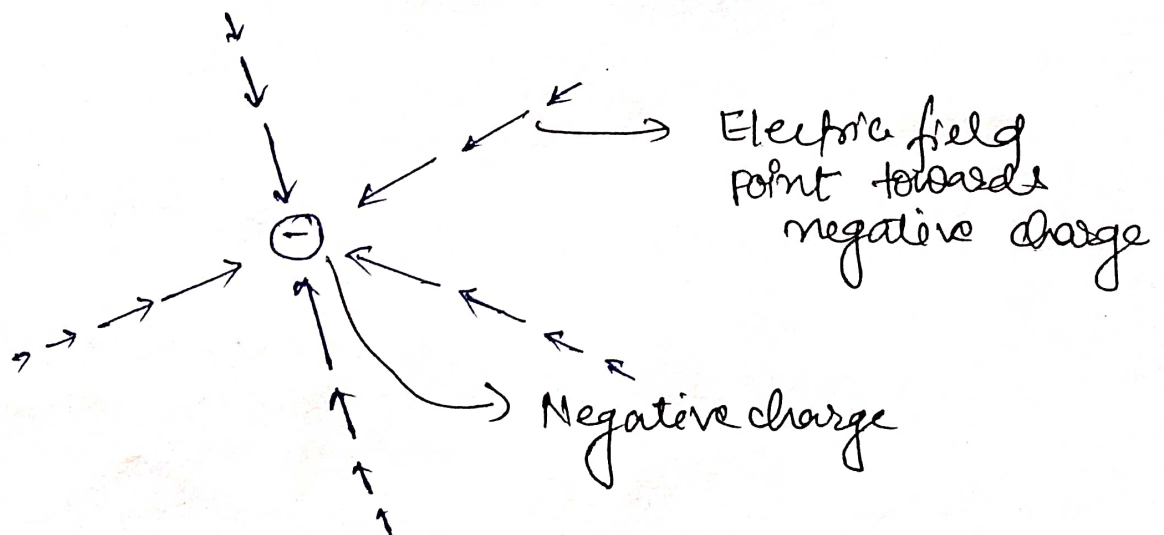 Electric field
point towards
negative charge
−
Negative charge